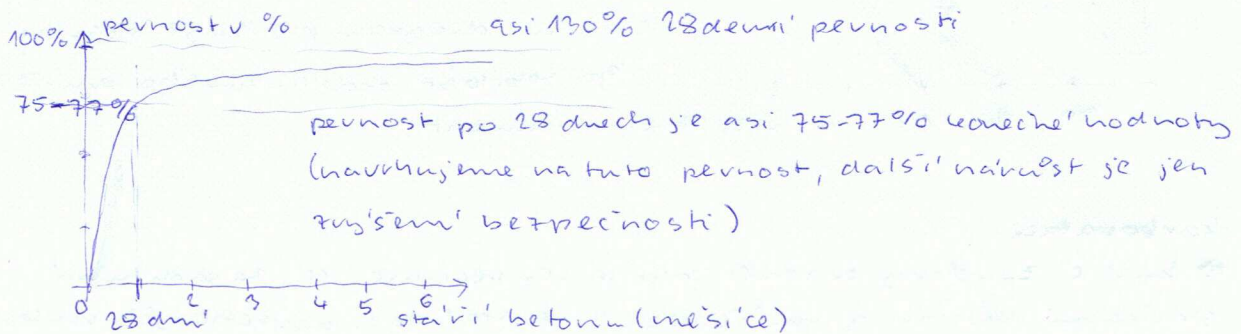 pevnost v % asi 130% 28denní pevnosti
100%
75-77%
pevnost po 28 dnech je asi 75-77% konečné hodnoty
(navrhujeme na tuto pevnost, další nárůst je jen
zvýšení bezpečnosti)
0 2 3 4 5 6
28 dní stáří betonu (měsíce)